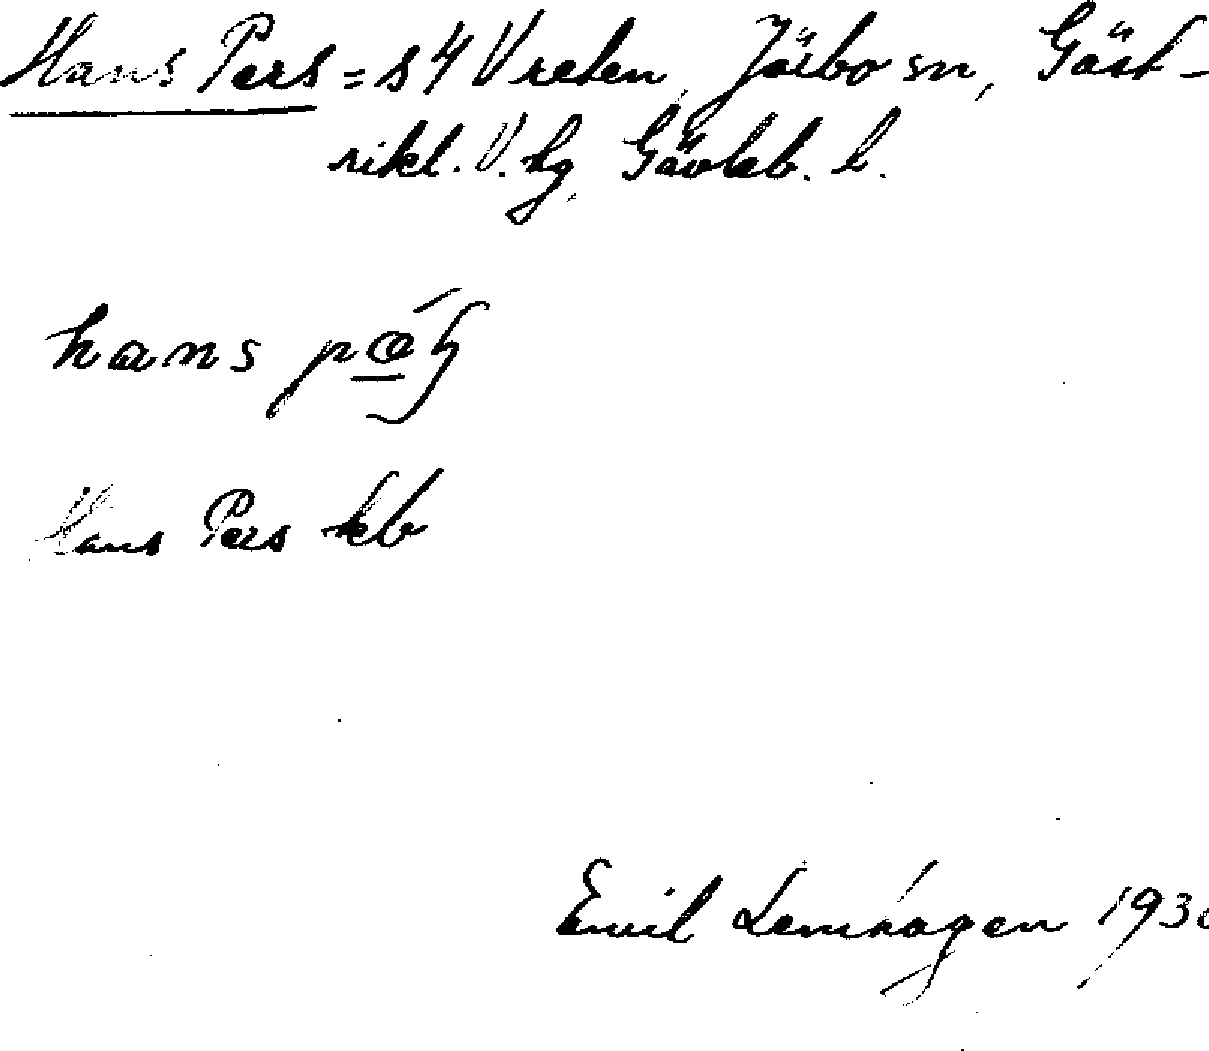 Hans Pers = s 4 Vreten, Järbo sn, Gäst-
rikl. V. hg, Gävleb. l.
hans
Hans Pers kb
Emil Lemhagen